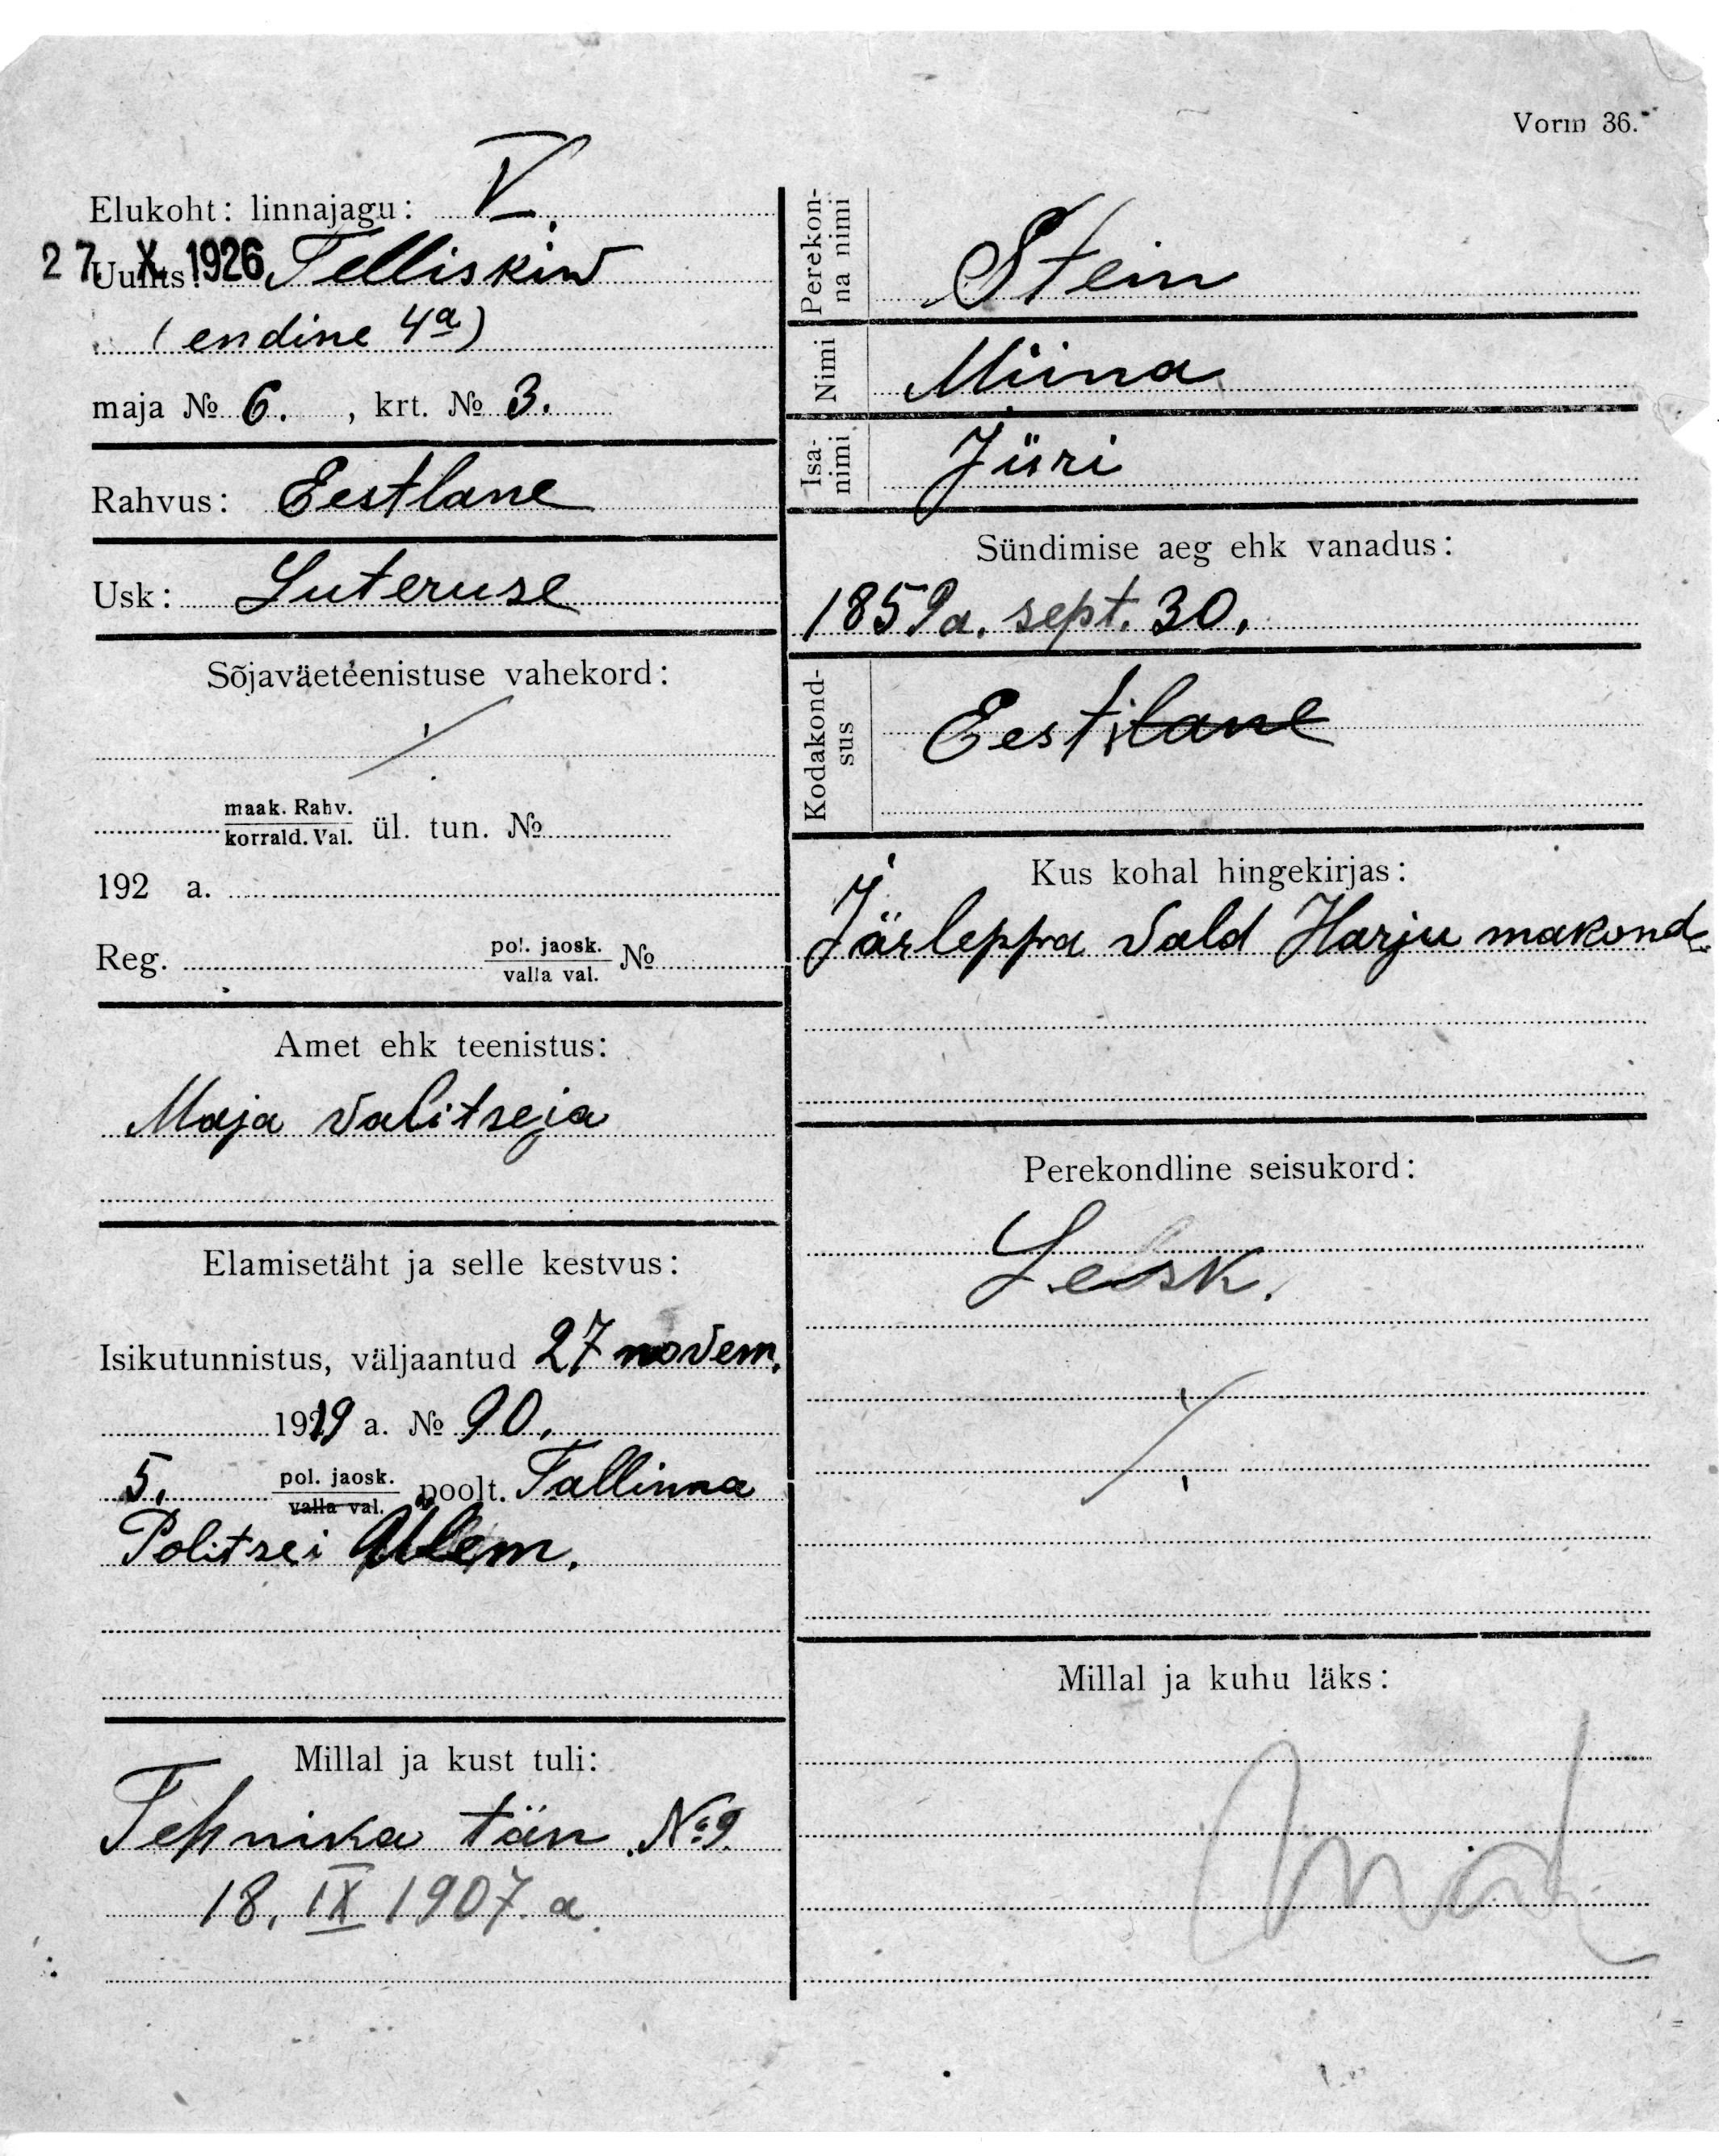 Vorm 36.
Elukoht: linnajagu: V.
27. X. 1926
Uulits: Telliskiw
(endine 4a)
maja № 6. , krt. № 3.
Rahvus: Eestlane
Usk: Luteruse
Sõjaväeteenistuse vahekord:
maak. Rahv.
korrald. Val. ül. tun. №
192 a.
Reg. pol. jaosk.
valla val. №
Amet ehk teenistus:
Maja valitseja
Elamisetäht ja selle kestvus:
Isikutunnistus, väljaantud 27 novem.
1919 a. № 90.
5. pol. jaosk.
valla val. poolt. Tallinna
Politsei Ülem.
Millal ja kust tuli:
Tehnika tän. № 9.
18. IX 1907. a.
Perekon-
na nimi
Stein
Nimi
Miina
Isa-
nimi
Jüri
Sündimise aeg ehk vanadus:
1859a. sept. 30.
Kodakond-
sus
Eestilane
Kus kohal hingekirjas:
Järleppa vald Harju makond
Perekondline seisukord:
Lesk.
Millal ja kuhu läks: